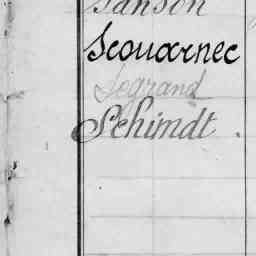 Sanson
Scouarnec
Legrand
Schimdt.